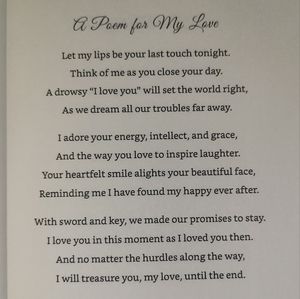 A Poem for My Love
Let my lips be your last touch tonight.
Think of me as you close your day.
A drowsy “I love you” will set the world right,
As we dream all our troubles far away.
I adore your energy, intellect, and grace,
And the way you love to inspire laughter.
Your heartfelt smile alights your beautiful face,
Reminding me I have found my happy ever after.
With sword and key, we made our promises to stay.
I love you in this moment as I loved you then.
And no matter the hurdles along the way,
I will treasure you, my love, until the end.